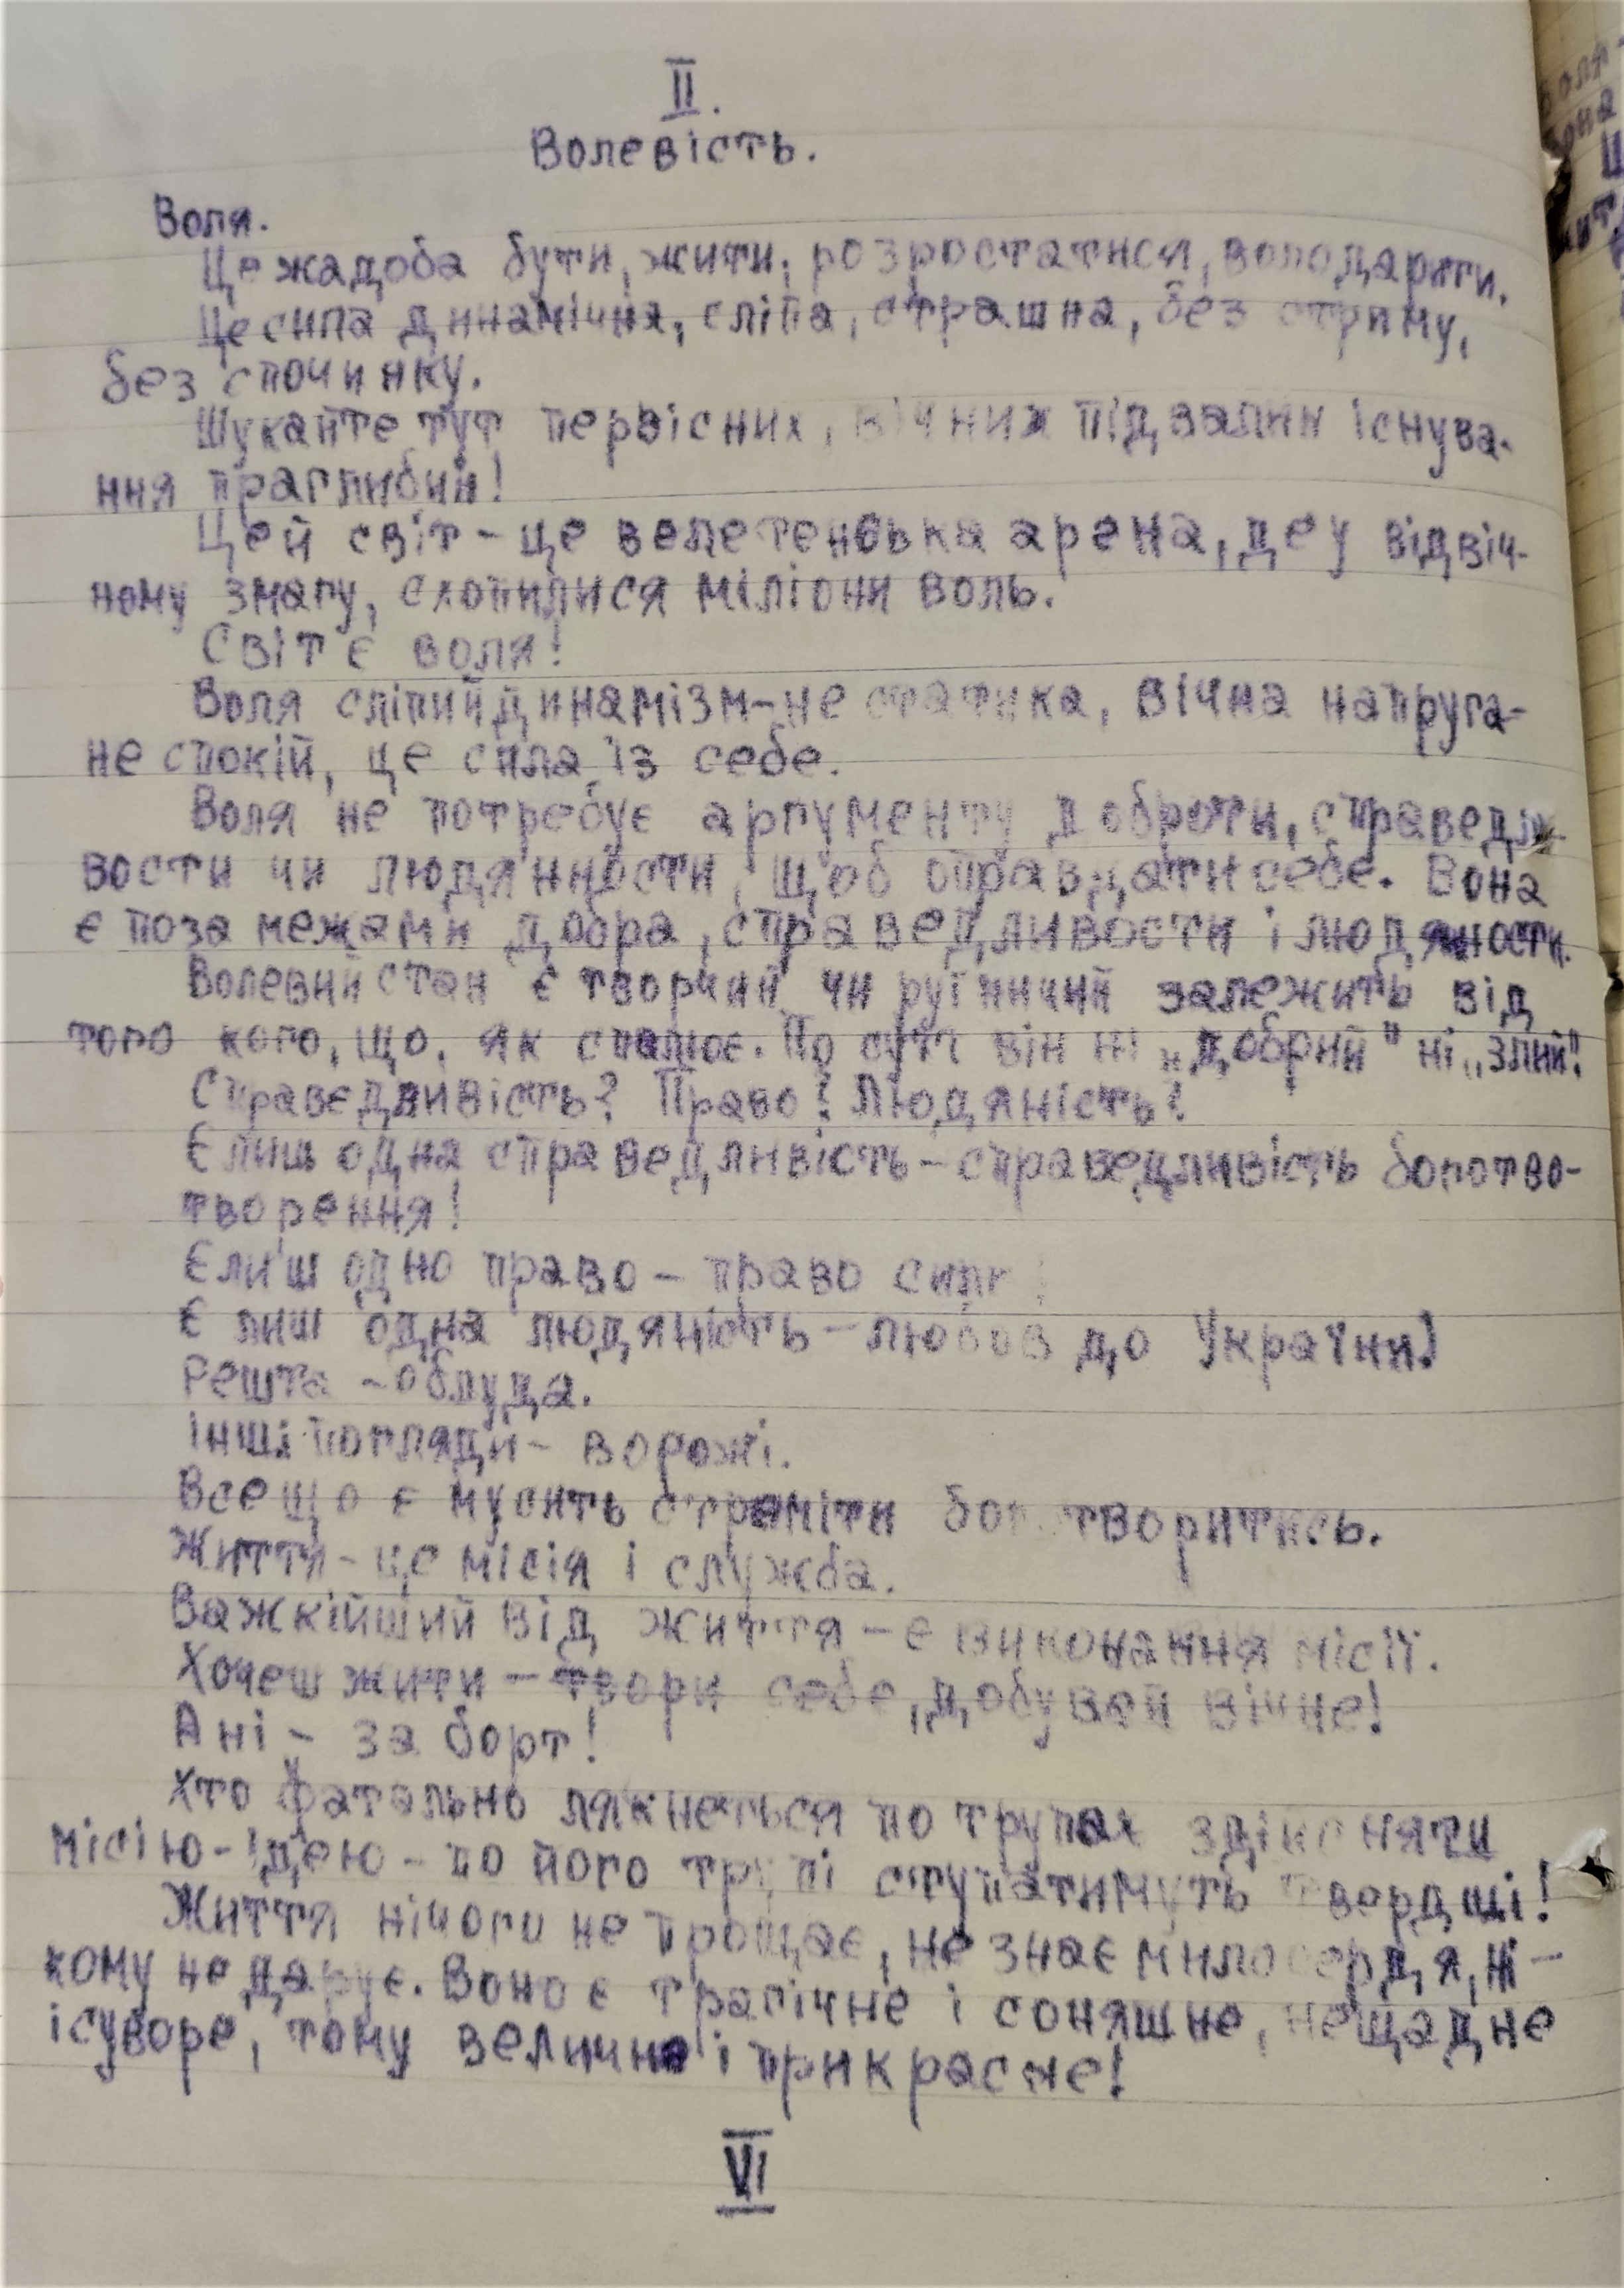 II.
Волевість.
Воля.
Це жадоба бути, жити, розростатися, володарити.
Це сила динамічна, сліпа, страшна, без стриму,
без спочинку.
Шукайте тут первісних, вічних підвалин існува-
ння праглибин!
Цей світ – це велетенська арена, де у відвіч-
ному змагу, схопилися міліони воль.
Світ є воля!
Воля сліпий динамізм – не статика, вічна напруга –
не спокій, це сила із себе.
Воля не потребує аргументу доброти, справедли-
вости чи людянности, щоб оправдати себе. Вона
є поза межами добра, справедливости і людяности.
Волевий стан є творчий чи руїнничий залежить від
того кого, що, як спалює. По суті він ні „добрий" ні „злий".
Справедливість? Право? Людяність?
Є лиш одна справедливість – справедливість боготво-
творення!
Є лиш одно право – право сили!
Є лиш одна людяність – любов до України!
Решта – облуда.
Інші погляди – ворожі.
Все що є мусить стреміти боготворитись.
Життя – це місія і служба.
Важкійший від життя – є виконання місії.
Хочеш жити – твори себе, добувай вічне!
А ні – за борт!
Хто фатально лякнеться по трупах здійсняти
місію-ідею – по його трупі ступатимуть твердші!
Життя нічого не прощає, не знає милосердя, ні-
кому не дарує. Воно є трагічне і соняшне, нещадне
і суворе, тому величне і прикрасне!
VI